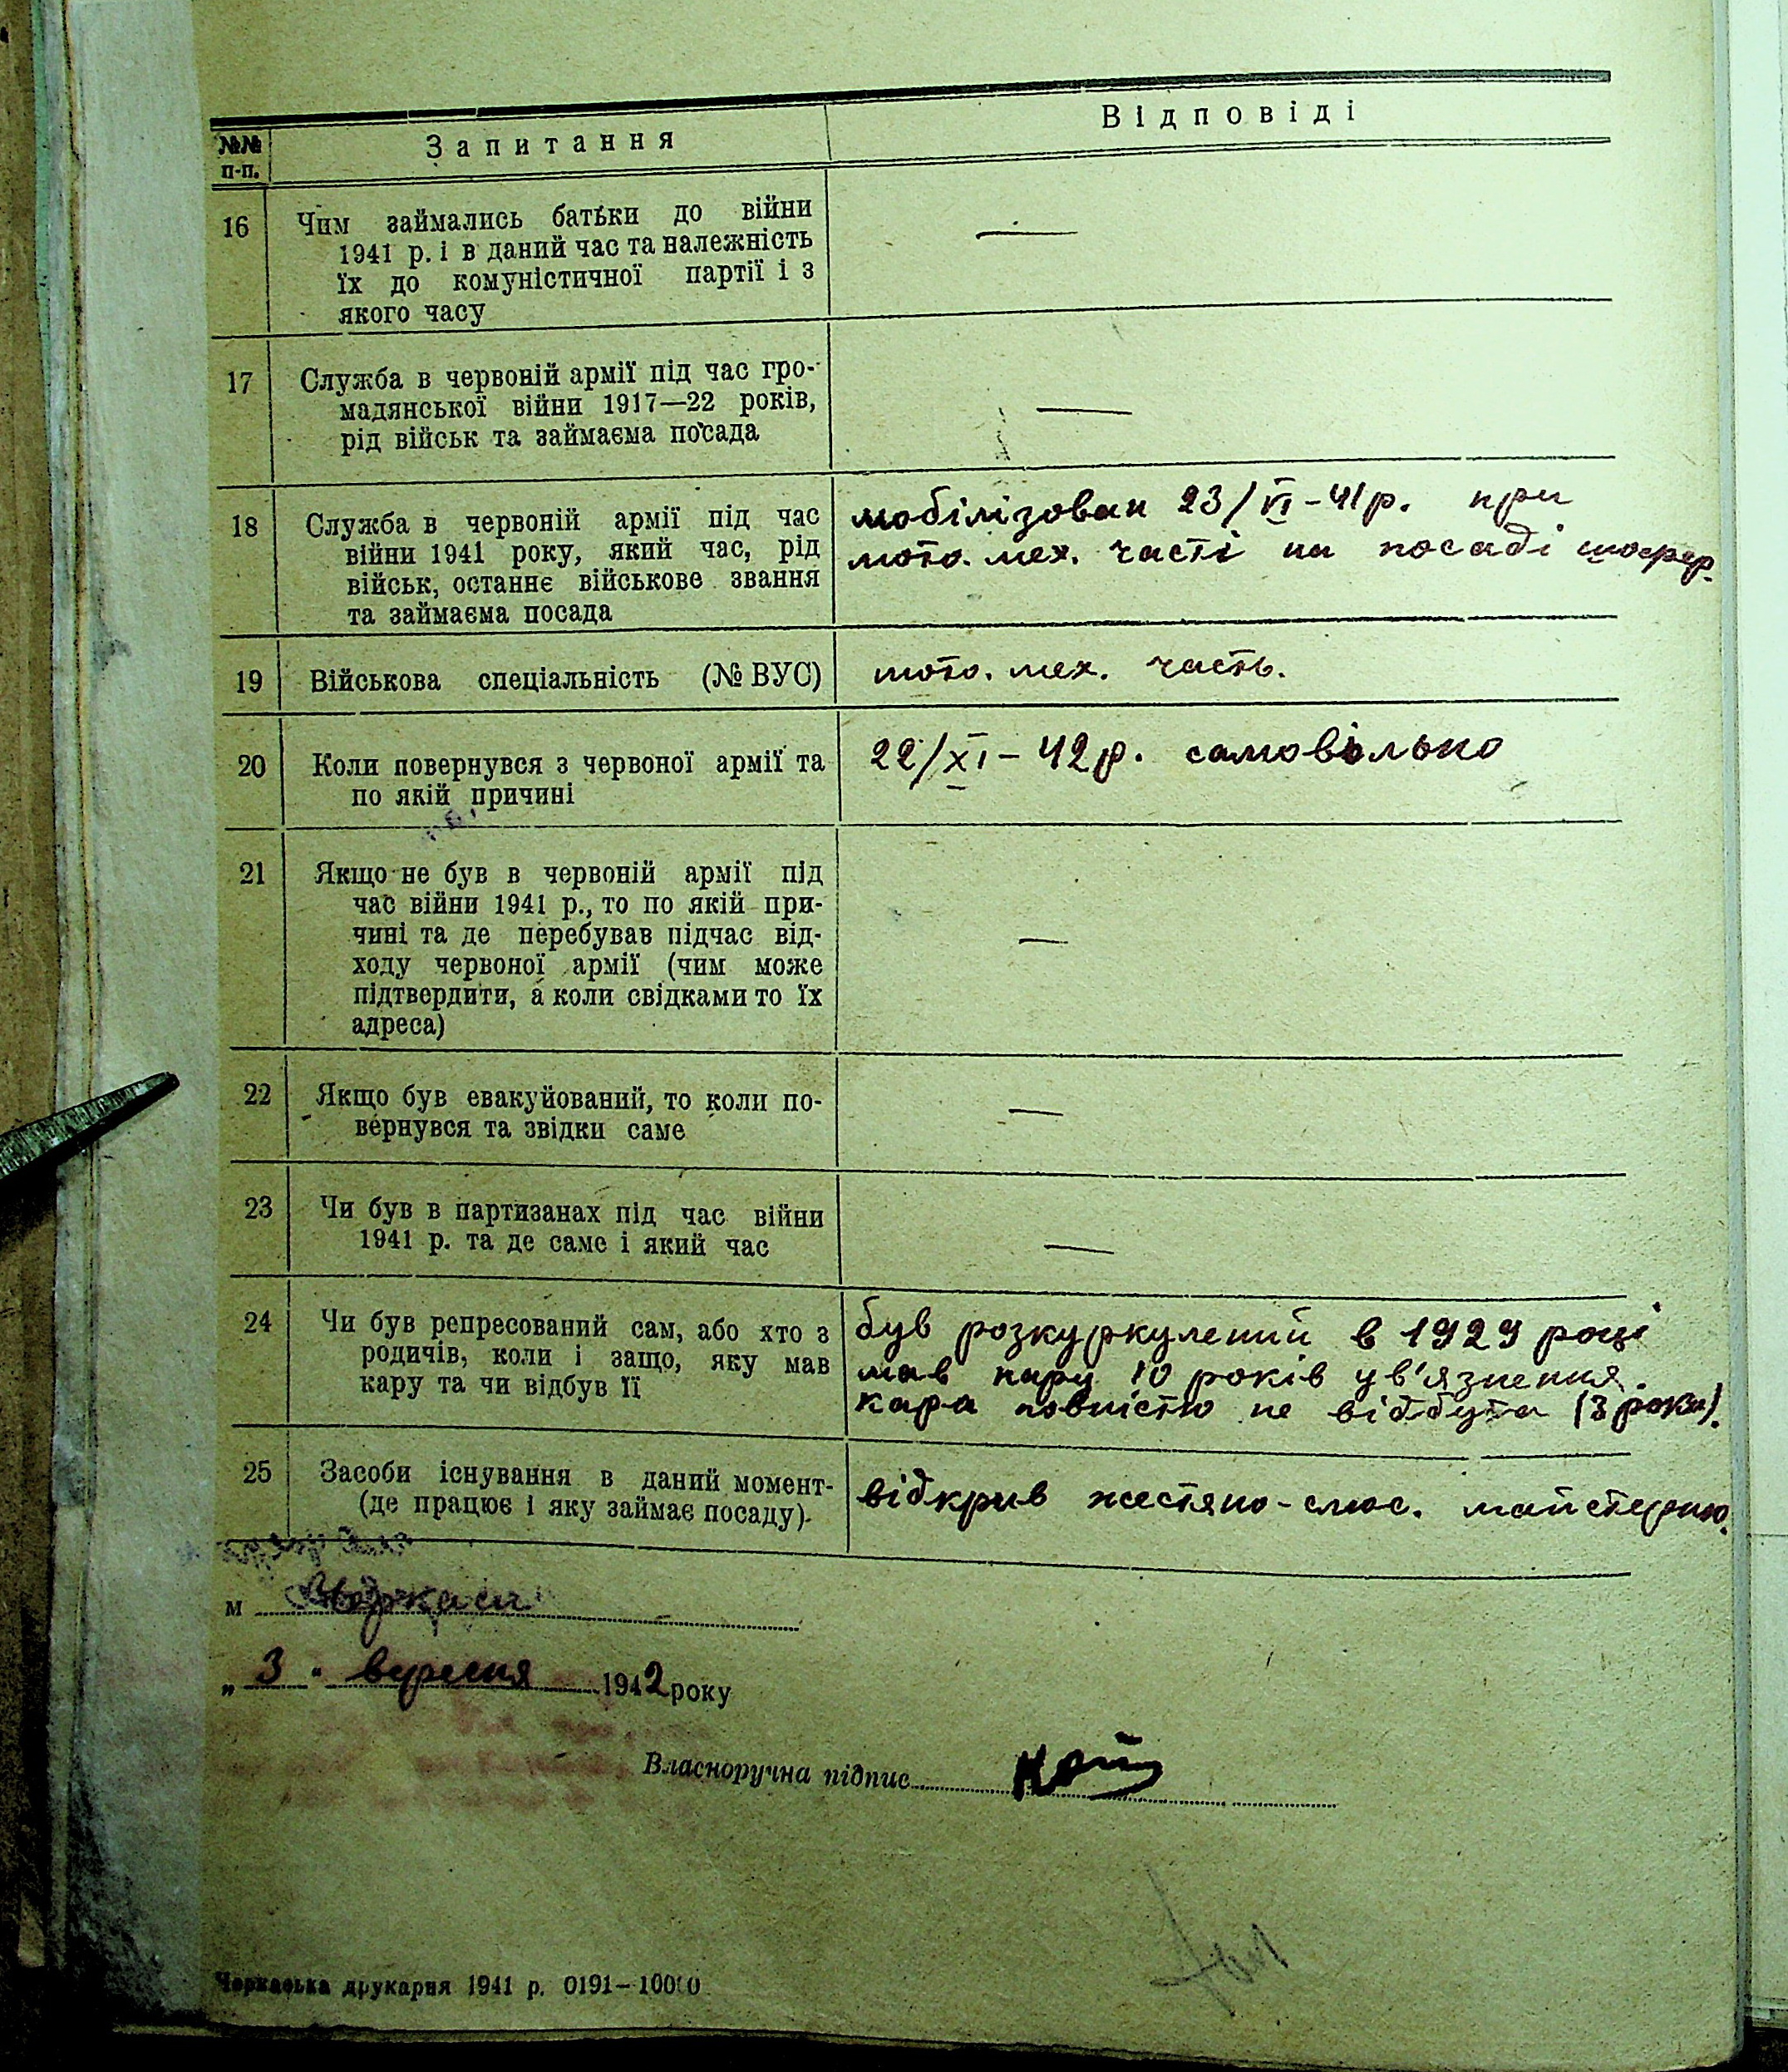 №№ п-п. Запитання Відповіді
16 Чим займались батьки до війни
1941 р. і в даний час та належність
їх до комуністичної партії і з
якого часу
—
17 Служба в червоній армії під час гро-
мадянської війни 1917—22 років,
рід військ та займаєма посада
—
18 Служба в червоній армії під час
війни 1941 року, який час, рід
військ, останнє військове звання
та займаєма посада
мобілізован 23/VI-41р. при
мото. мех. часті на посаді шофер.
19 Військова спеціальність (№ ВУС)
мото. мех. часть.
20 Коли повернувся з червоної армії та
по якій причині
22/XI-42р. самовільно
21 Якщо не був в червоній армії під
час війни 1941 р., то по якій при-
чині та де перебував підчас від-
ходу червоної армії (чим може
підтвердити, а коли свідками то їх
адреса)
—
22 Якщо був евакуйований, то коли по-
вернувся та звідки саме
—
23 Чи був в партизанах під час війни
1941 р. та де саме і який час
—
24 Чи був репресований сам, або хто з
родичів, коли і защо, яку мав
кару та чи відбув її
був розкуркулений в 1929 році
мав кару 10 років ув'язнення.
кара повністю не відбута (3 роки).
25 Засоби існування в даний момент-
(де працює і яку займає посаду).
відкрив жестяно-слюс. майстерню.
м Черкаси
„3" вересня 1942 року
Власноручна підпис
Черкаська друкарня 1941 р. 0191—10000